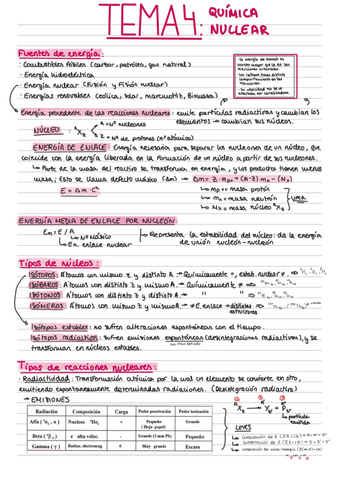 TEMA 4: QUÍMICA
NUCLEAR
Fuentes de energía:
· Combustibles fósiles (carbor, petróleo, gas natural)
· Energía hidroeléctrica
· Energía nuclear (Fusión y Fisión nuclear)
· Energías renovables (eólica, solar, mareomotriz, biomasa)
Energía procedente de las reacciones nucleares: emite partículas radiactivas y cambian los
elementos → cambian sus núcleos.
NÚCLEO:
A = Nº nucleones
Z = Nº de protones (nº atómico)
ENERGÍA DE ENLACE: Energía necesaria para separar los nucleones de un núcleo, que
coincide con la energía liberada en la formación de un núcleo a partir de sus nucleones.
↳ Parte de la masa del reactivo se transforma en energía, y los productos tienen menos
masa; Esto se llama defecto másico (Δm) → Δm = Z · mp+ + (A-Z) · mn - (Mx)
E = Δm · C²
↳ mp+ = masa protón
↳ mn = masa neutrón
↳ Mx = masa núcleo
UMA
ENERGÍA MEDIA DE ENLACE POR NUCLEÓN:
Em = E / A
↳ Nº Másico
↳ En. enlace nuclear
Representa la estabilidad del núcleo: da la energía
de unión nucleón-nucleón
Tipos de núcleos:
ISÓTOPOS: Átomos con mismo z y distinto A → Químicamente =, estab. nuclear ≠
ISÓBAROS: Átomos con distinto z y mismo A → Químicamente ≠
ISÓTONOS: Átomos con distinto z y distinto A
ISÓMEROS: Átomos con mismo z y mismo A → ≠ E. enlace → distintas
estructuras
Isótopos estables: no sufren alteraciones espontáneas con el tiempo.
Isótopos radiactivos: Sufren emisiones espontáneas (desintegraciones radiactivas), y se
transforman en núcleos estables.
Tipos de reacciones nucleares:
· Radiactividad: Transformación atómica por la cual un elemento se convierte en otro,
emitiendo espontáneamente determinadas radiaciones. (Desintegración radiactiva)
→ EMISIONES
Radiación Composición Carga Poder penetración Poder ionización
Alfa (⁴₂, α) Núcleos ⁴He₂ + Pequeño (Hoja papel) Grande
Beta (β⁻₀) e⁻ alta veloc. - Grande (3 mm Pb) Pequeño
Gamma (γ) Radiac. electromag. 0 Muy grande Escaso
partícula
emitida
LEYES